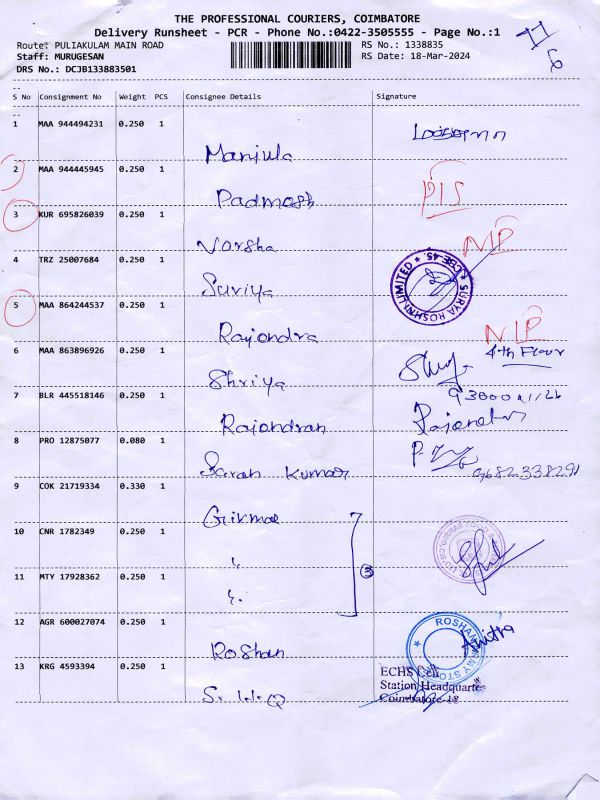 THE PROFESSIONAL COURIERS, COIMBATORE
Delivery Runsheet - PCR - Phone No.:0422-3505555 - Page No.:1
Route: PULIAKULAM MAIN ROAD RS No.: 1338835
Staff: MURUGESAN RS Date: 18-Mar-2024
DRS No.: DCJB133883501
S No Consignment No Weight PCS Consignee Details Signature
1 MAA 944494231 0.250 1 Manjula
2 MAA 944445945 0.250 1 Padmesh
3 KUR 695826039 0.250 1 Varsha
4 TRZ 25007684 0.250 1 Suriya
SURYA ROSHNI LIMITED ★ CBE-45. ★
5 MAA 864244537 0.250 1 Rajendra
6 MAA 863896926 0.250 1 Shriya
4th Floor
7 BLR 445518146 0.250 1 Rajendran
8 PRO 12875077 0.080 1 Saran Kumar
9682338291
9 COK 21719334 0.330 1
10 CNR 1782349 0.250 1
11 MTY 17928362 0.250 1
3
12 AGR 600027074 0.250 1 Roshan
13 KRG 4593394 0.250 1 S. H. Q
ECHS Cell
Station Headquarte
Coimbatore-18